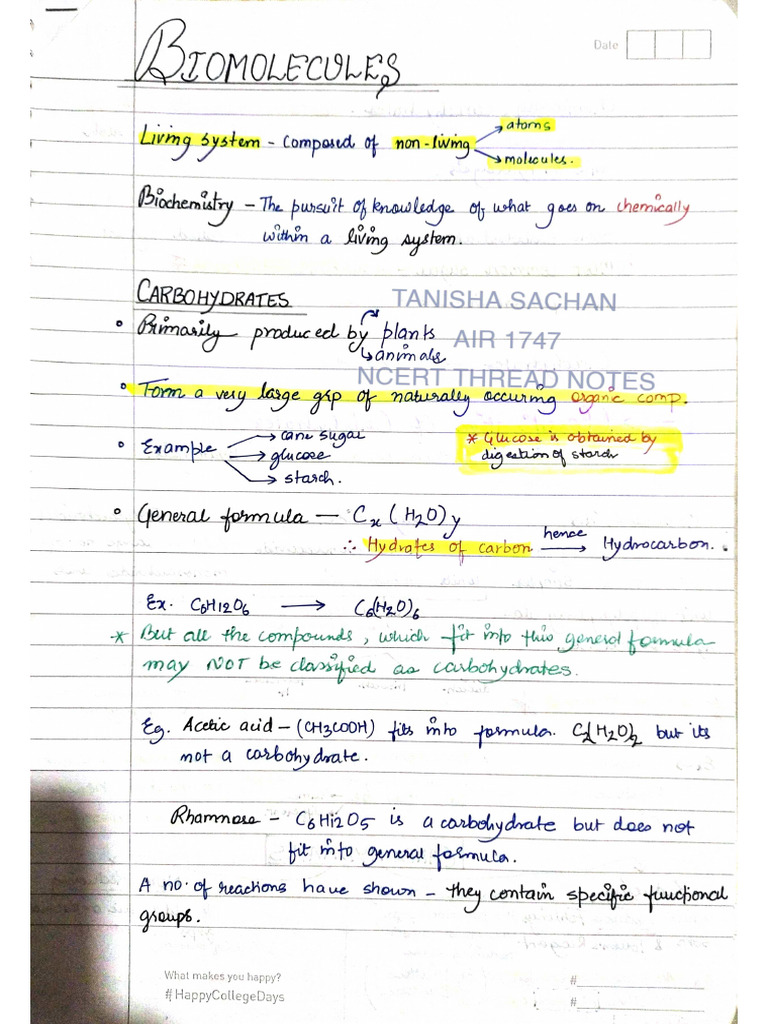 Date
BIOMOLECULES
Living system - Composed of non-living
→ atoms
→ molecules.
Biochemistry - The pursuit of knowledge of what goes on chemically
within a living system.
CARBOHYDRATES
TANISHA SACHAN
• Primarily produced by plants
AIR 1747
↳ animals
NCERT THREAD NOTES
• Form a very large grp of naturally occuring organic comp.
• Example → cane sugar
→ glucose
→ starch.
* Glucose is obtained by
digestion of starch
• General formula — Cx(H2O)y
∴ Hydrates of carbon hence → Hydrocarbon.
Ex. C6H12O6 → C6(H2O)6
* But all the compounds, which fit into this general formula
may NOT be classified as carbohydrates.
Eg. Acetic acid - (CH3COOH) fits into formula. C2(H2O)2 but its
not a carbohydrate.
Rhamnose - C6H12O5 is a carbohydrate but does not
fit into general formula.
A no. of reactions have shown - they contain specific functional
groups.
What makes you happy?
#HappyCollegeDays
#
#